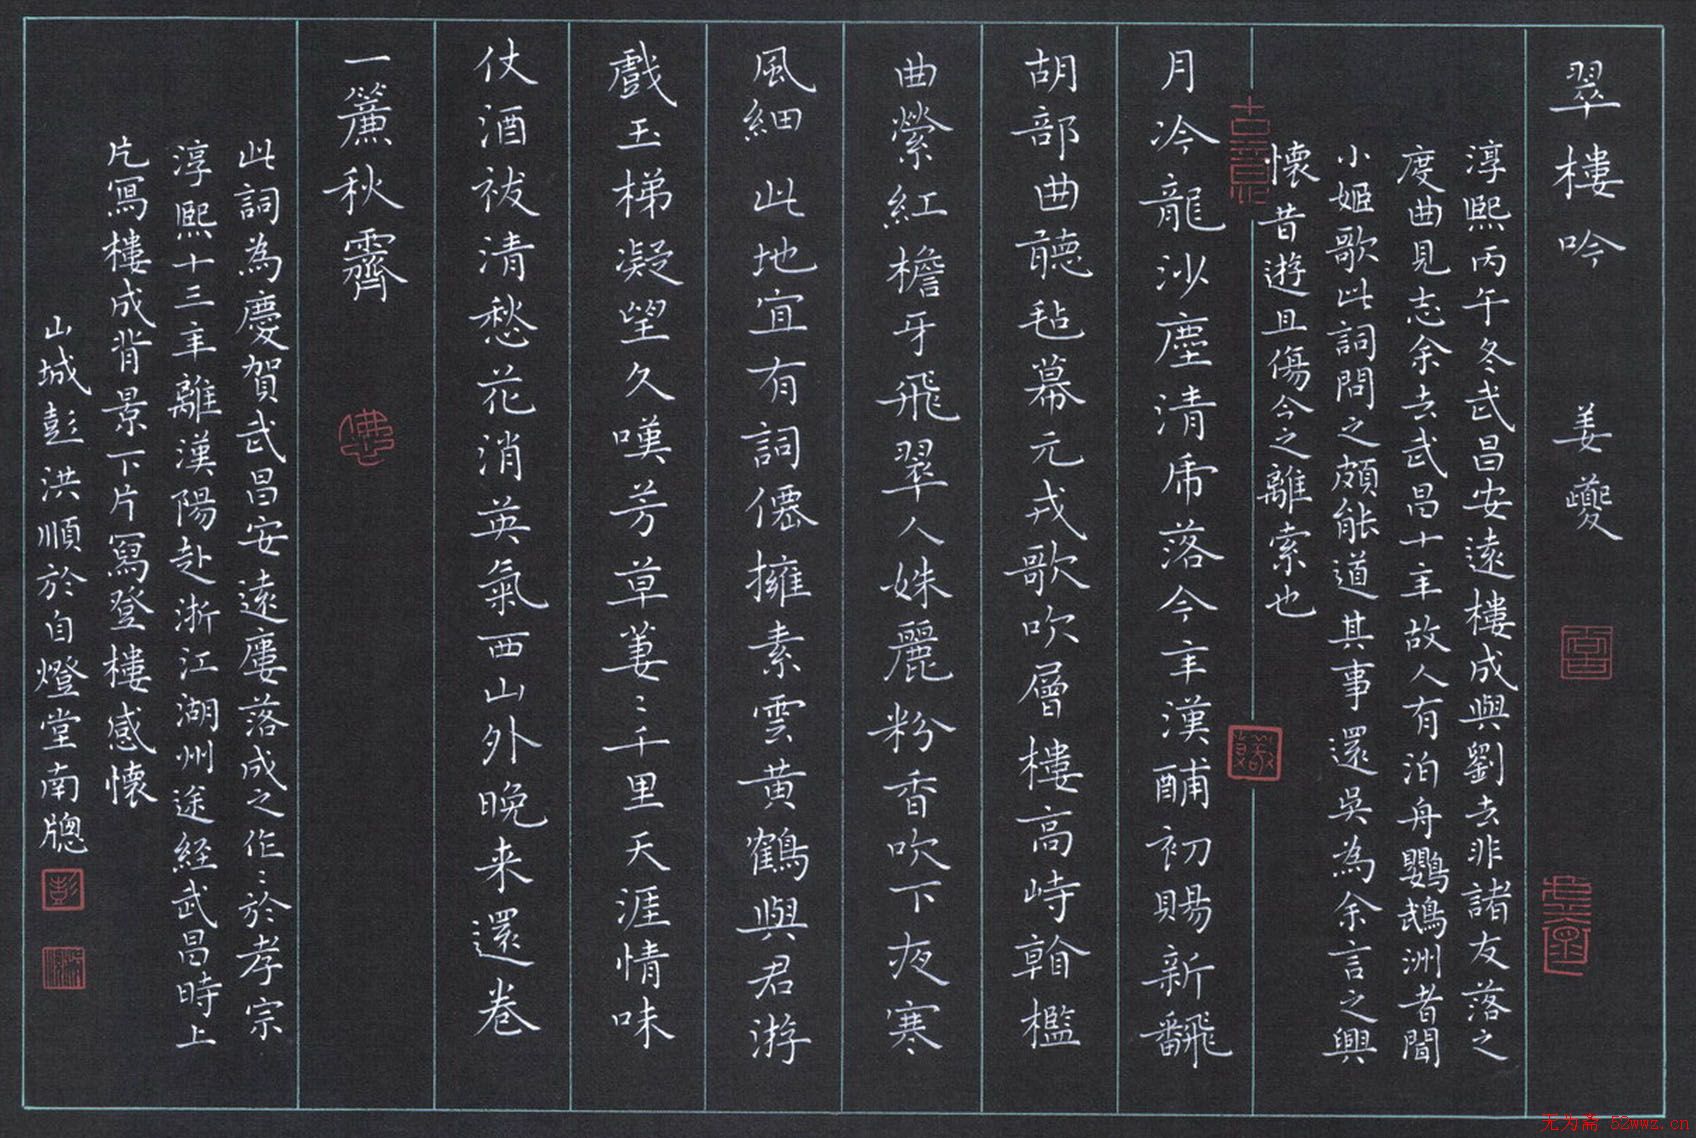 翠樓吟 姜夔
淳熙丙午冬武昌安遠樓成與劉去非諸友落之
度曲見志余去武昌十年故人有泊舟鸚鵡洲者聞
小姬歌此詞問之頗能道其事還吳為余言之興
懷昔遊且傷今之離索也
月冷龍沙塵清虎落今年漢酺初賜新翻
胡部曲聽氈幕元戎歌吹層樓高峙䡖檻
曲縈紅檐牙飛翠人姝麗粉香吹下夜寒
風細 此地宜有詞僊擁素雲黃鶴與君游
戲玉梯凝望久嘆芳草萋〻千里天涯情味
仗酒祓清愁花消英氣西山外晚来還卷
一簾秋霽
此詞為慶賀武昌安遠廔落成之作〻於孝宗
淳熙十三年離漢陽赴浙江湖州途經武昌時上
片寫樓成背景下片寫登樓感懷
山城彭洪順於自燈堂南牕
彭
无为斋 52wwz.cn